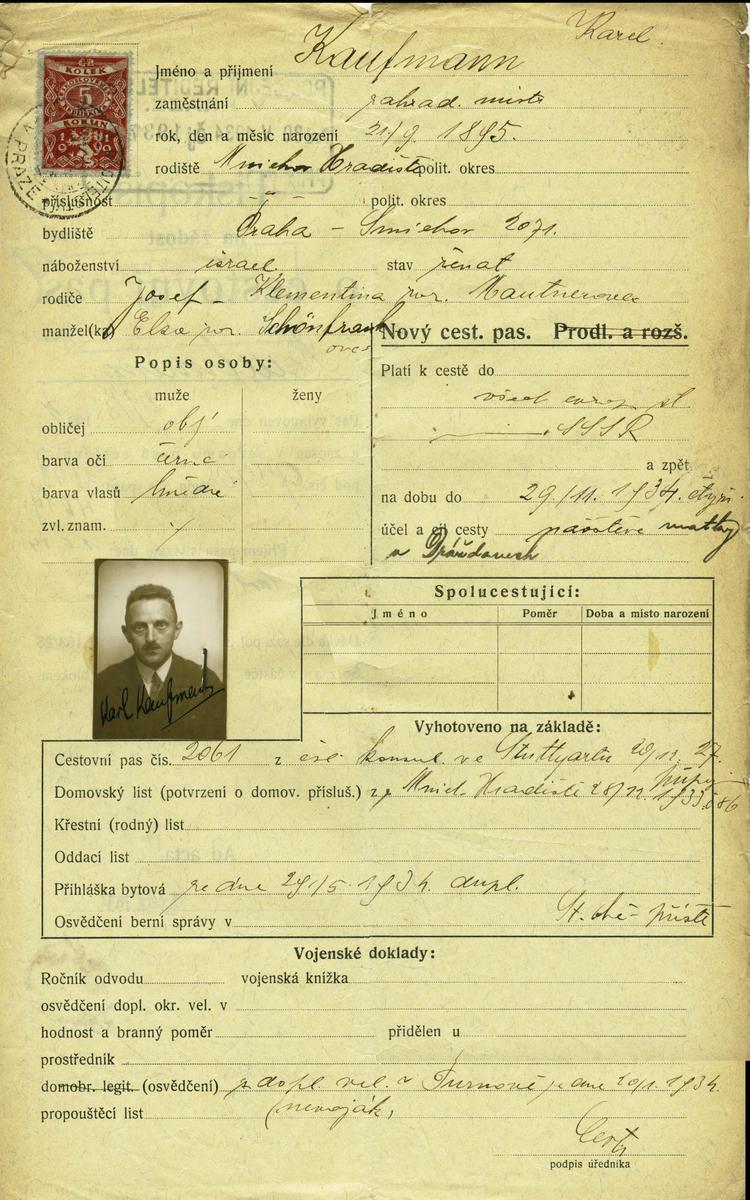 Karel
Jméno a příjmení Kaufmann
KOLEK
5
KORUN
V PRAZE
zaměstnání zahrad. mistr
rok, den a měsíc narození 21/9. 1895.
rodiště Mnichov Hradiště polit. okres
příslušnost -"- polit. okres
bydliště Praha - Smíchov 2071.
náboženství israel. stav ženat
rodiče Josef - Klementina roz. Mautnerova
manžel(ka) Elsa roz. Schönfrank
ova
Nový cest. pas. Prodl. a rozš.
Popis osoby:
muže ženy
obličej obl
barva očí černé
barva vlasů hnědé
zvl. znam. ./.
Platí k cestě do
všech evrop. st
SSSR
a zpět
na dobu do 29/11. 1934.
účel a cíl cesty návštěva matky
v Drážďanech
Karl Kaufmann
Spolucestující:
Jméno Poměr Doba a místo narození
Vyhotoveno na základě:
Cestovní pas čís. 2061 z čsl. konsul. ve Stuttgartu 20/12. 27.
Domovský list (potvrzení o domov. přísluš.) z Mnich. Hradiště 28/12. 1933
Křestní (rodný) list
Oddací list
Přihláška bytová ze dne 29/5. 1934. dupl.
Osvědčení berní správy v
Vojenské doklady:
Ročník odvodu vojenská knížka
osvědčení dopl. okr. vel. v
hodnost a branný poměr přidělen u
prostředník
domobr. legit. (osvědčení) dopl. vel. v Turnově ze dne 20/1. 1934.
propouštěcí list (nevoják)
podpis úředníka